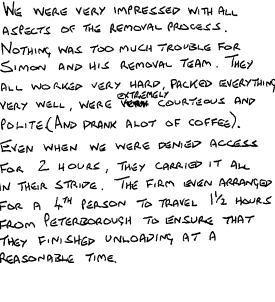 WE WERE VERY IMPRESSED WITH ALL
ASPECTS OF THE REMOVAL PROCESS.
NOTHING WAS TOO MUCH TROUBLE FOR
SIMON AND HIS REMOVAL TEAM. THEY
ALL WORKED VERY HARD, PACKED EVERYTHING
VERY WELL, WERE EXTREMELY COURTEOUS AND
POLITE (AND DRANK ALOT OF COFFEE).
EVEN WHEN WE WERE DENIED ACCESS
FOR 2 HOURS, THEY CARRIED IT ALL
IN THEIR STRIDE. THE FIRM EVEN ARRANGED
FOR A 4TH PERSON TO TRAVEL 1½ HOURS
FROM PETERBOROUGH TO ENSURE THAT
THEY FINISHED UNLOADING AT A
REASONABLE TIME.